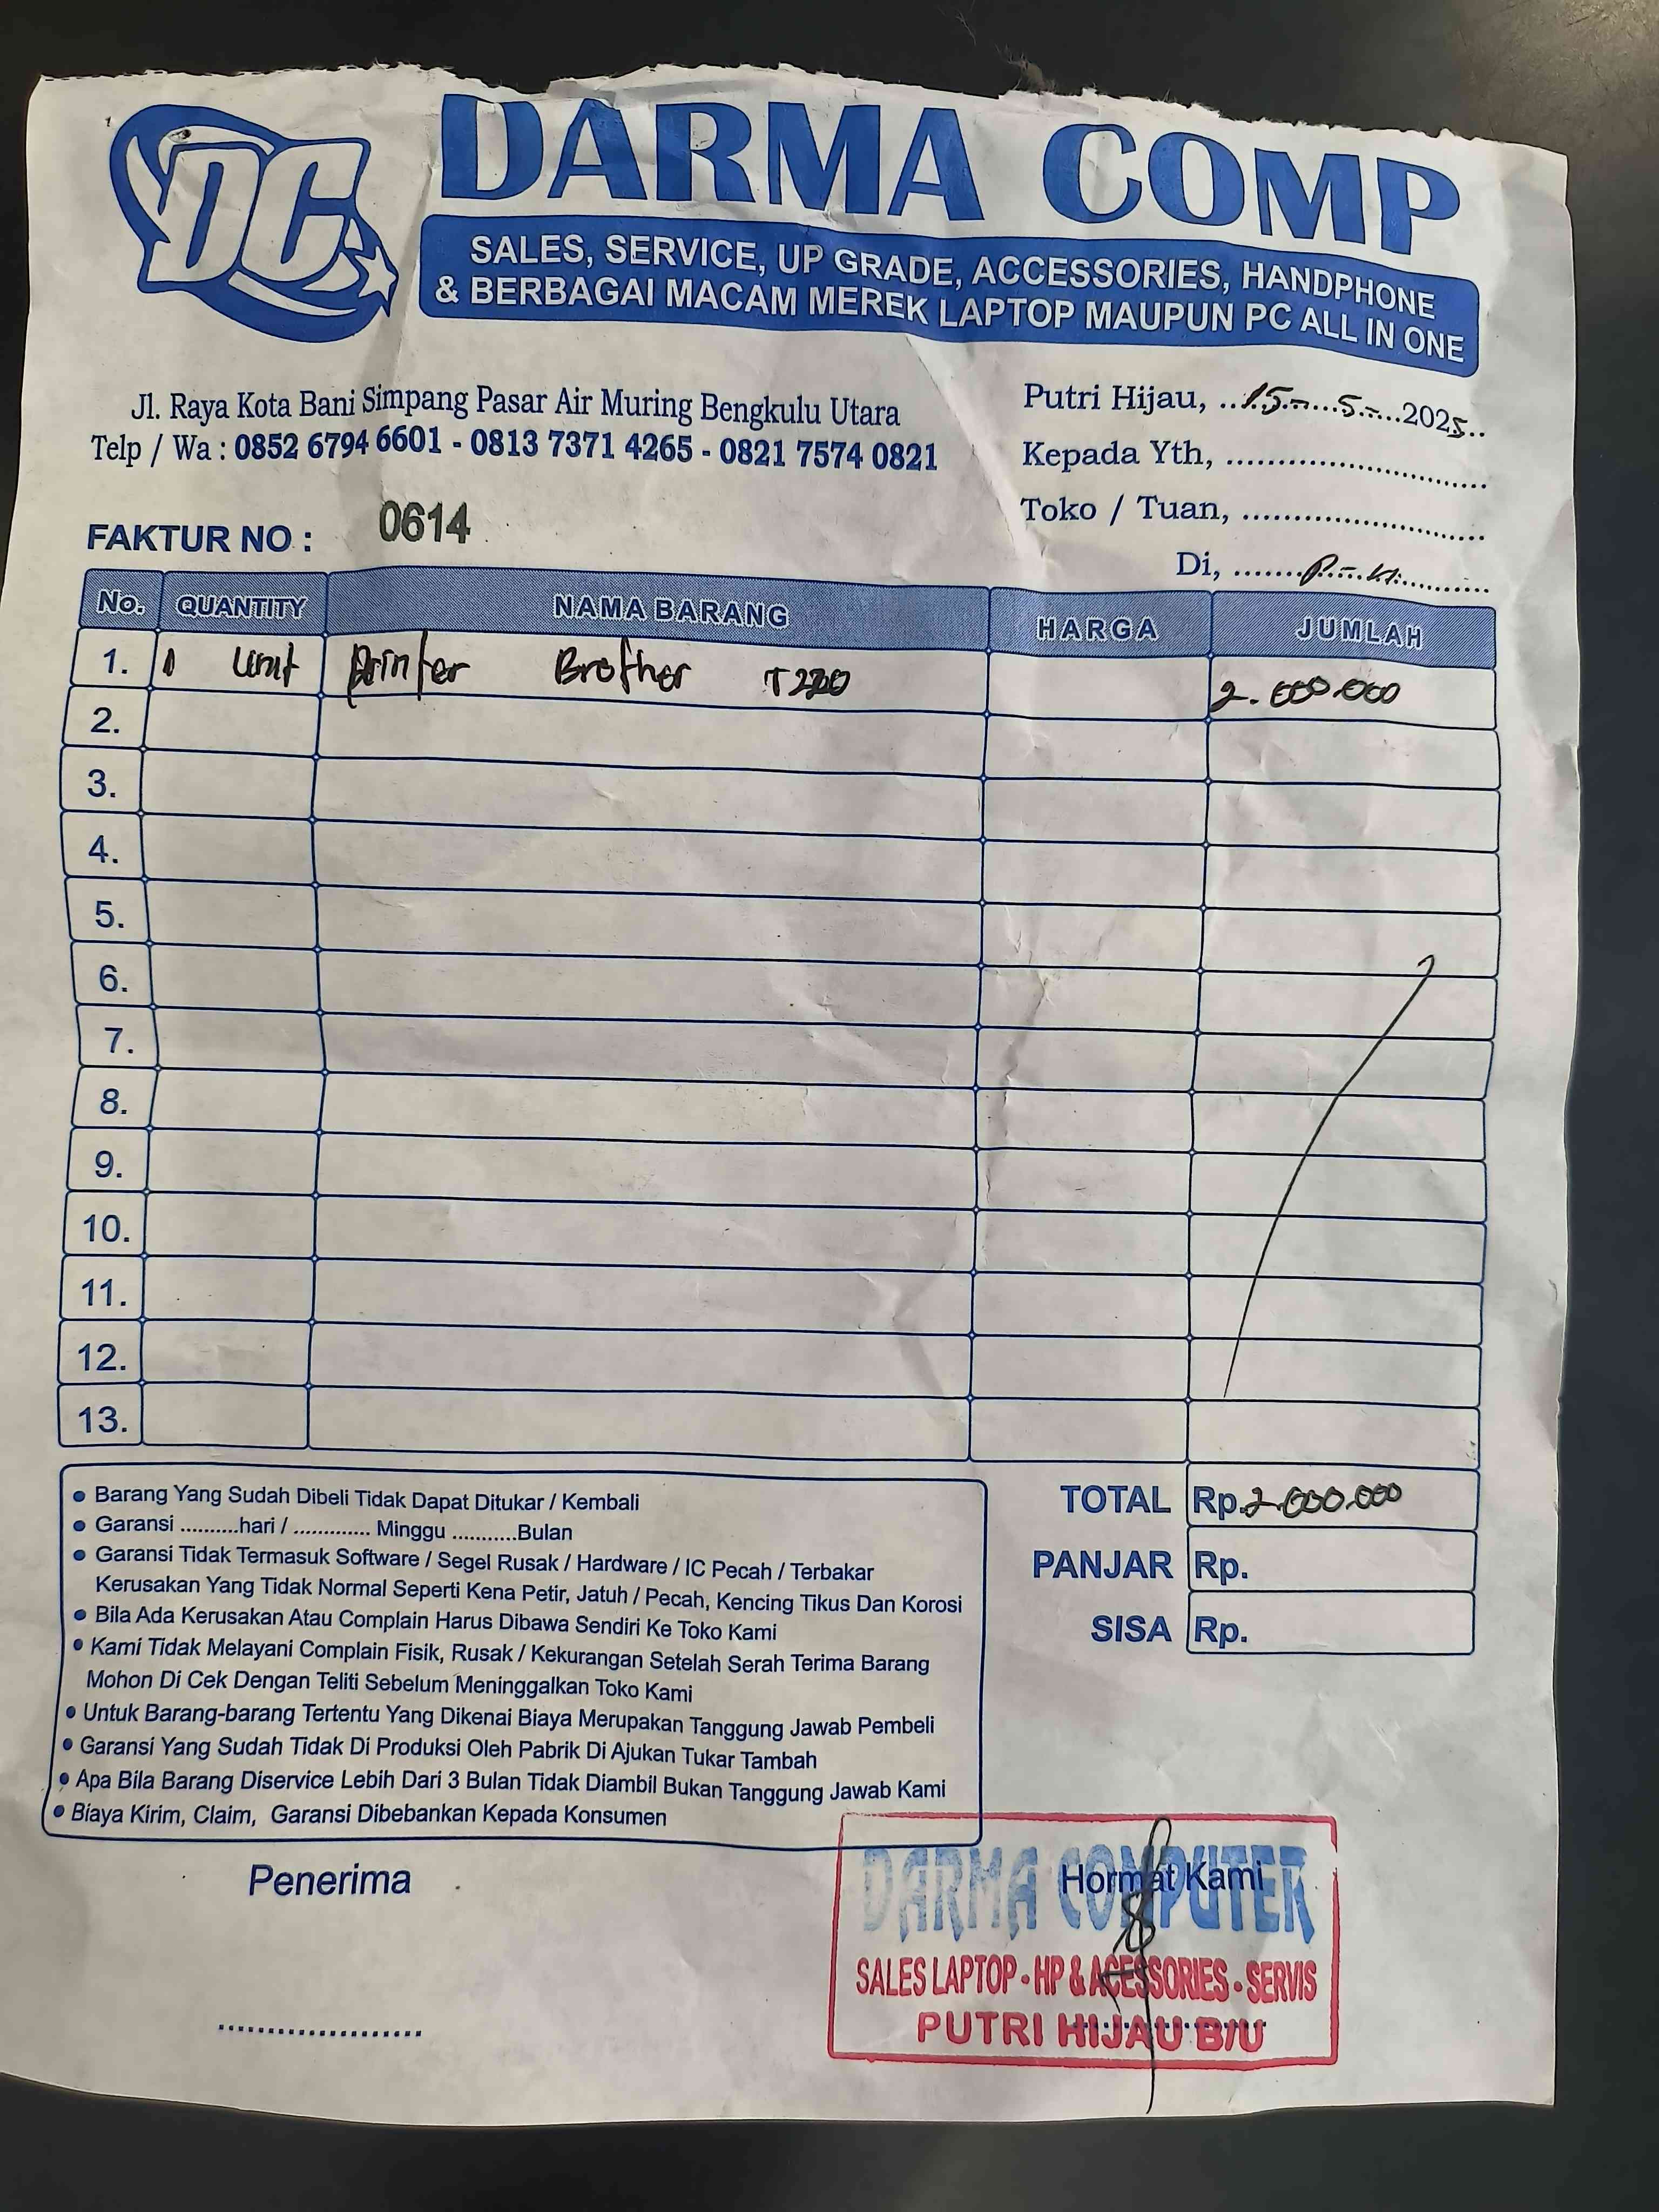 DC
DARMA COMP
SALES, SERVICE, UP GRADE, ACCESSORIES, HANDPHONE
& BERBAGAI MACAM MEREK LAPTOP MAUPUN PC ALL IN ONE
Jl. Raya Kota Bani Simpang Pasar Air Muring Bengkulu Utara
Telp / Wa : 0852 6794 6601 - 0813 7371 4265 - 0821 7574 0821
Putri Hijau, ..15-...5-....2025..
Kepada Yth, ..............................
Toko / Tuan, ............................
Di, .......P.H...........
FAKTUR NO : 0614
No. QUANTITY NAMA BARANG HARGA JUMLAH
1. 1 Unit Printer Brother 2.000.000
2.
3.
4.
5.
6.
7.
8.
9.
10.
11.
12.
13.
TOTAL Rp. 2.000.000
PANJAR Rp.
SISA Rp.
• Barang Yang Sudah Dibeli Tidak Dapat Ditukar / Kembali
• Garansi ..........hari / ............. Minggu ...........Bulan
• Garansi Tidak Termasuk Software / Segel Rusak / Hardware / IC Pecah / Terbakar
Kerusakan Yang Tidak Normal Seperti Kena Petir, Jatuh / Pecah, Kencing Tikus Dan Korosi
• Bila Ada Kerusakan Atau Complain Harus Dibawa Sendiri Ke Toko Kami
• Kami Tidak Melayani Complain Fisik, Rusak / Kekurangan Setelah Serah Terima Barang
Mohon Di Cek Dengan Teliti Sebelum Meninggalkan Toko Kami
• Untuk Barang-barang Tertentu Yang Dikenai Biaya Merupakan Tanggung Jawab Pembeli
• Garansi Yang Sudah Tidak Di Produksi Oleh Pabrik Di Ajukan Tukar Tambah
• Apa Bila Barang Diservice Lebih Dari 3 Bulan Tidak Diambil Bukan Tanggung Jawab Kami
• Biaya Kirim, Claim, Garansi Dibebankan Kepada Konsumen
Penerima
Hormat Kami
DARMA COMPUTER
SALES LAPTOP - HP & ACESSORIES - SERVIS
PUTRI HIJAU B/U